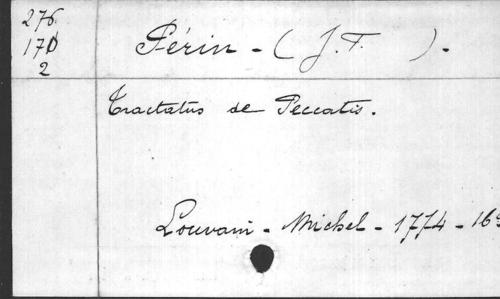 276
170
2
Périn - (J. F. ) -
Tractatus de Peccatis.
Louvain - Michel - 1774 - 16°